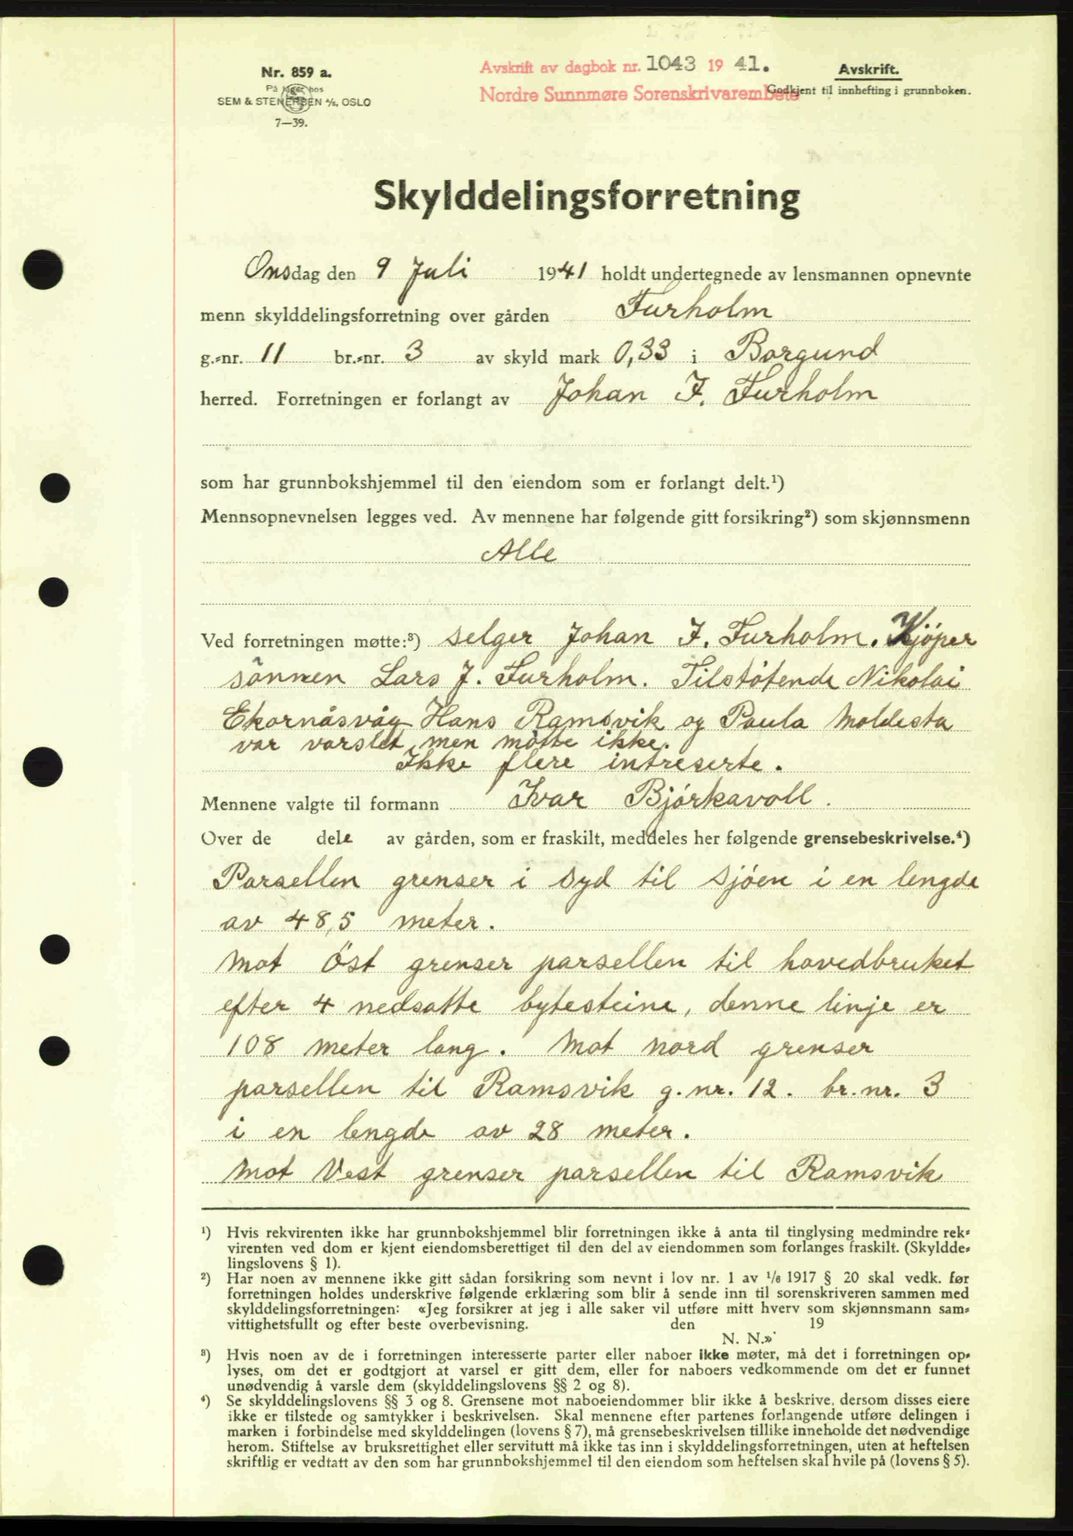 Nr. 859 a.
På lager hos
SEM & STENERSEN A/S, OSLO
7—39.
Avskrift av dagbok nr. 1043 1941.
Nordre Sunnmøre Sorenskrivarembete
Avskrift.
Godkjent til innhefting i grunnboken.
Skylddelingsforretning
Onsdag den 9 Juli 1941 holdt undertegnede av lensmannen opnevnte
menn skylddelingsforretning over gården Furholm
g.-nr. 11 br.-nr. 3 av skyld mark 0,33 i Borgund
herred. Forretningen er forlangt av Johan J. Furholm
som har grunnbokshjemmel til den eiendom som er forlangt delt.¹)
Mennsopnevnelsen legges ved. Av mennene har følgende gitt forsikring²) som skjønnsmenn
Alle
Ved forretningen møtte:³) selger Johan J. Furholm. Kjøper
sønnen Lars J. Furholm. Tilstøtende Nikolai
Ekornåsvåg Hans Ramsvik og Paula Moldesta
var varslet men møtte ikke.
Ikke flere intreserte.
Mennene valgte til formann Ivar Bjørkavoll.
Over de dele av gården, som er fraskilt, meddeles her følgende grensebeskrivelse.⁴)
Parsellen grenser i syd til sjøen i en lengde
av 48,5 meter.
Mot Øst grenser parsellen til hovedbruket
efter 4 nedsatte bytesteine, denne linje er
108 meter lang. Mot nord grenser
parsellen til Ramsvik g.nr. 12. br.nr. 3
i en lengde av 28 meter.
Mot Vest grenser parsellen til Ramsvik
¹) Hvis rekvirenten ikke har grunnbokshjemmel blir forretningen ikke å anta til tinglysing medmindre rek-
virenten ved dom er kjent eiendomsberettiget til den del av eiendommen som forlanges fraskilt. (Skyldde-
lingslovens § 1).
²) Har noen av mennene ikke gitt sådan forsikring som nevnt i lov nr. 1 av 1/6 1917 § 20 skal vedk. før
forretningen holdes underskrive følgende erklæring som blir å sende inn til sorenskriveren sammen med
skylddelingsforretningen: «Jeg forsikrer at jeg i alle saker vil utføre mitt hverv som skjønnsmann sam-
vittighetsfullt og efter beste overbevisning. den 19
N. N.»
³) Hvis noen av de i forretningen interesserte parter eller naboer ikke møter, må det i forretningen op-
lyses, om det er godtgjort at varsel er gitt dem, eller for naboers vedkommende om det er funnet
unødvendig å varsle dem (skylddelingslovens §§ 2 og 8).
⁴) Se skylddelingslovens §§ 3 og 8. Grensene mot naboeiendommer blir ikke å beskrive, dersom disses eiere
ikke er tilstede og samtykker i beskrivelsen. Skal mennene efter partenes forlangende utføre delingen i
marken i forbindelse med skylddelingen (lovens § 7), må grensebeskrivelsen tillike inneholde det nødvendige
herom. Stiftelse av bruksrettighet eller servitutt må ikke tas inn i skylddelingsforretningen, uten at heftelsen
skriftlig er vedtatt av den som har grunnbokshjemmel til den eiendom som heftelsen skal hvile på (lovens § 5).